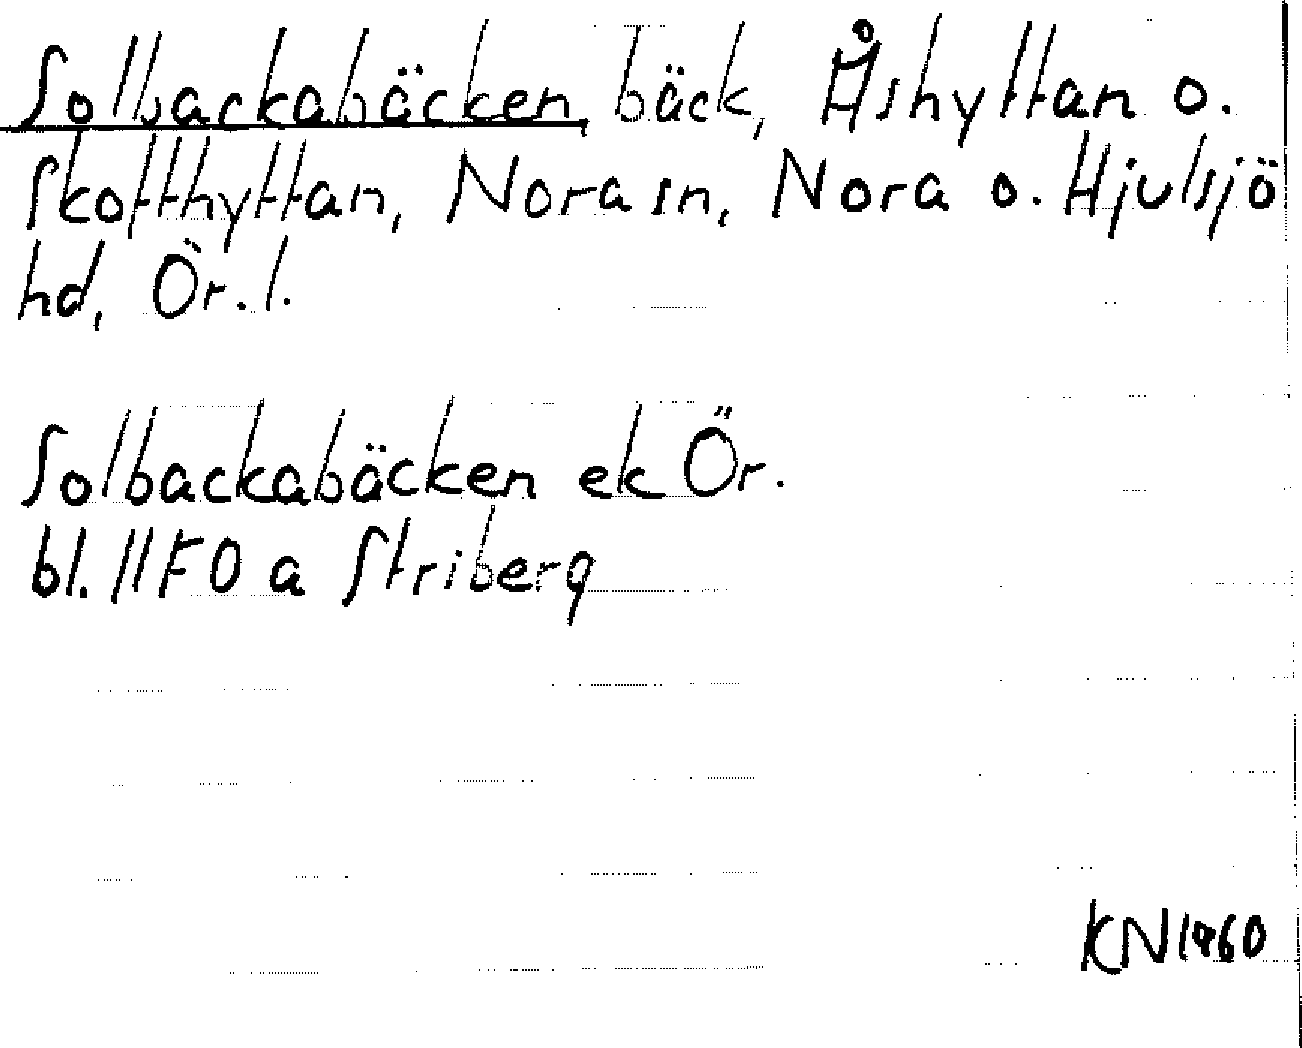 Solbackabäcken, bäck, Åshyttan o.
Skofthyttan, Nora sn, Nora o. Hjulsjö
hd, Ör. l.
Solbackabäcken ek Ör.
bl. 11F0 a Striberg
KN 1960